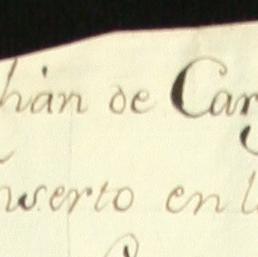 hán de Car
nserto en l